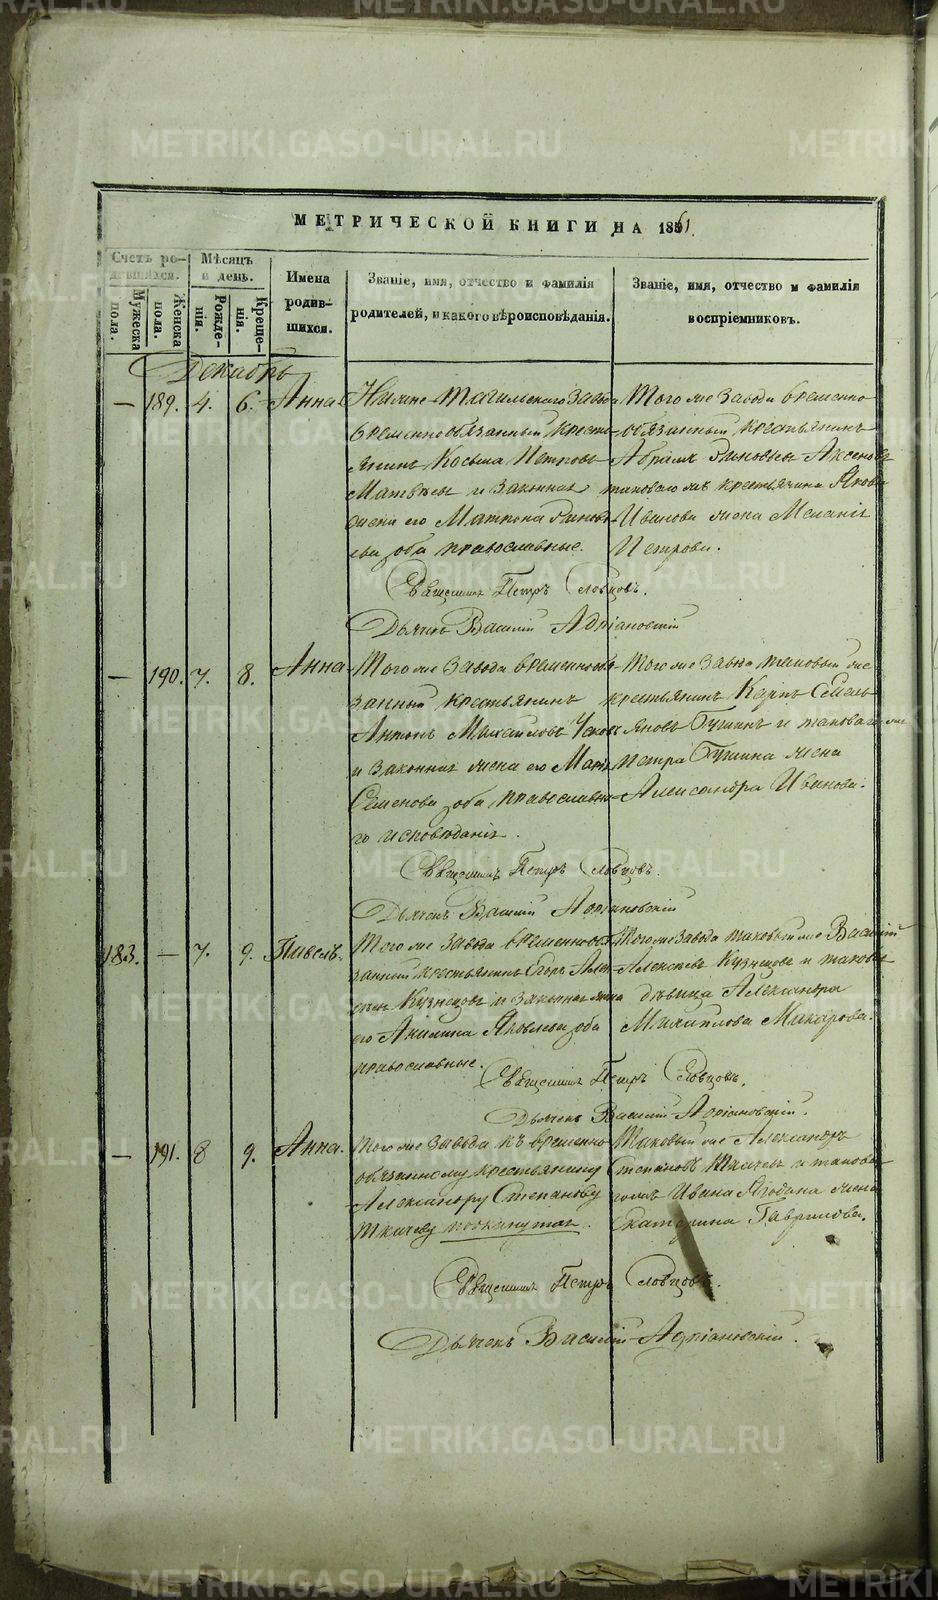 МЕТРИЧЕСКОЙ КНИГИ НА 1861.
Счетъ родившихся.
Мужеска пола.
Женска пола.
Мѣсяцъ и день.
Рожденія.
Крещенія.
Имена родившихся.
Званіе, имя, отчество и фамилія
родителей, и какого вѣроисповѣданія.
Званіе, имя, отчество и фамилія
воспріемниковъ.
Декабрь
— 189. 4. 6. Анна
Нижне-Тагильскаго завода
временнообязанный кресть-
янинъ Косьма Петровъ
и законная
жена его Матрона
оба православные.
Того же завода временно-
обязанный крестьянинъ
таковаго жъ крестьянина Якова
Иванова жена Меланія
Петрова.
Священникъ Петръ Словцовъ.
Дьячекъ Василій Адріановскій
— 190. 7. 8. Анна
Того же завода временнообя-
занный крестьянинъ
Антонъ Михайловъ
и законная жена его Марія
Семенова оба православна-
го исповѣданія.
Того же завода таковый же
крестьянинъ Карпъ Емель-
яновъ и таковаго же
Петра жена
Александра Иванова.
Священникъ Петръ Словцовъ.
Дьячекъ Василій Адріановскій
183. — 7. 9. Павелъ.
Того же завода временнообя-
занный крестьянинъ Егоръ Алек-
сѣевъ Кузнецовъ и законная жена
его Акилина Яковлева оба
православные.
Того же завода таковый же Василій
Алексѣевъ Кузнецовъ и таковая
дѣвица Александра
Михайлова Макарова.
Священникъ Петръ Словцовъ.
Дьячекъ Василій Адріановскій.
— 191. 8 9. Анна.
Того же завода къ временно-
обязанному крестьянину
Александру Степанову
Ткачеву подкинутая.
Таковый же Александръ
Степановъ Ткачевъ и таково-
гожъ Ивана жена
Екатерина Гаврилова.
Священникъ Петръ Словцовъ.
Дьячекъ Василій Адріановскій.
METRIKI.GASO-URAL.RU